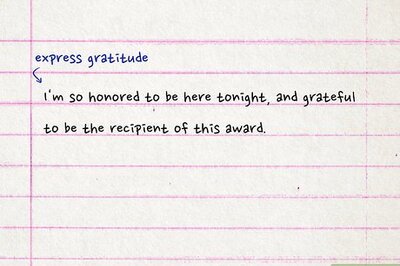 express gratitude
I'm so honored to be here tonight, and grateful
to be the recipient of this award.